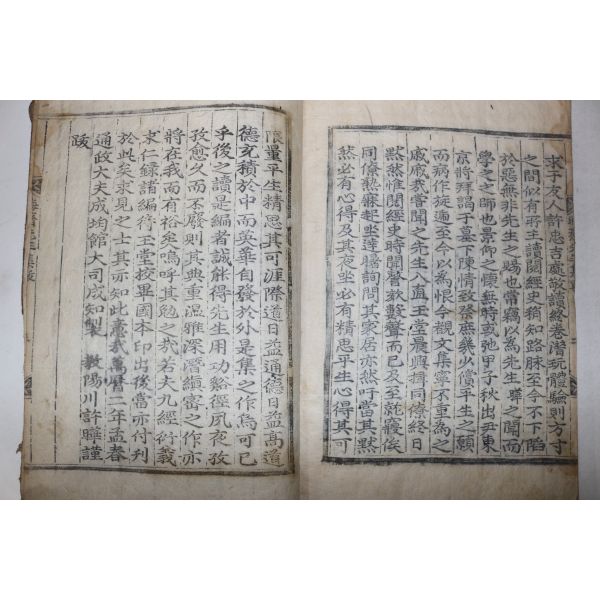 求乎友人許忠吉處敬讀終卷潛玩體驗則方寸
之間似有所主讀閱經史稍知路脉至今不下陷
於惡無非先生之賜也嘗竊以爲先生曄之聞而
學之之師也景仰之懷無時或弛甲子秋出尹東
京將拜謁于墓下陳情致祭庶幾少償平生之願
而病作旋遞至今以爲恨今觀文集寧不重爲之
戚戚哉嘗聞之先生入直玉堂晨興揖同僚終日
默然惟閱經史時聞謦欬聲而已及至乾寢俟
同僚熟寐起坐達曙詢問其家居亦然吁當其默
然必有心得及其夜坐必有精思平生心得其可
限量平生精思其可涯際道日益通德日益高道
德充積於中而英華自發於外是集之作烏可已
乎後之讀是編者誠能得先生用功谿徑夙夜孜
孜愈久而不廢則其典重溫雅深潛縝密之作亦
將在我而有裕矣嗚呼其勉之哉若夫九經衍義
求仁錄諸編待玉堂校畢國本印出後當亦付刊
於此矣求見之士其亦知此歲萬曆二年孟春
通政大夫成均館大司成知製 敎陽川許曄謹
跋